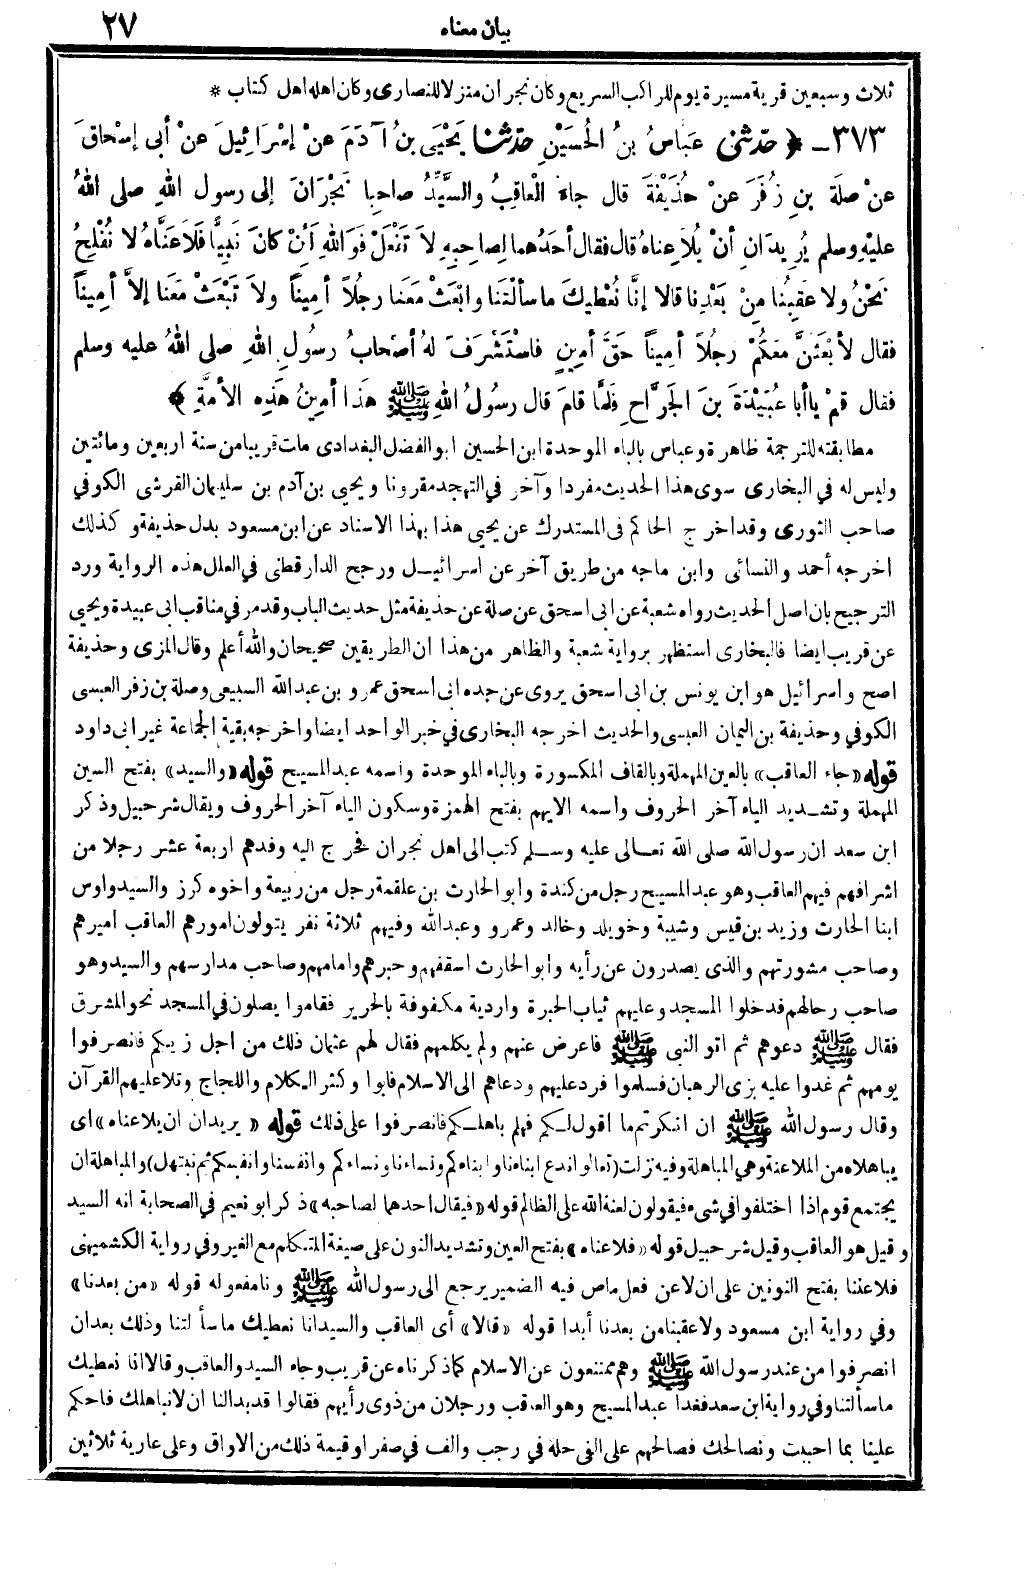 بيان معناه ٢٧
ثلاث وسبعين قرية مسيرة يوم للراكب السريع وكان نجران منزلا للنصارى وكان اهله اهل كتاب *
٣٧٣ ـ ﴿ حدّثني عَبَّاسُ بنُ الحُسَيْنِ حدّثنا يَحْيَى بنُ آدَمَ عنْ إسْرَائِيلَ عنْ أبى إسْحاقَ
عنْ صِلَةَ بنِ زُفَرَ عنْ حُذَيْفَةَ قال جاءَ الْعاقِبُ والسَّيِّدُ صاحِبا نَجْرَانَ إلى رسول اللهِ صلى اللهُ
عليْهِ وسلم يُرِيدَانِ أنْ يُلاَعِناهُ قال فقال أحَدُهما لِصاحِبِهِ لاَ تَفْعَلْ فَوَاللهِ لَئِنْ كانَ نَبِيًّا فَلاَعَنَّاهُ لا نُفْلِحُ
نَحْنُ ولا عَقِبُنا مِنْ بَعْدِنا قالا إنَّا نُعْطِيكَ ما سألْتَنا وابْعَثْ مَعَنا رجُلاً أمِيناً ولاَ تَبْعَثْ مَعَنا إلاَّ أمِيناً
فقال لأَبْعَثَنَّ مَعَكُمْ رجُلاً أمِيناً حَقَّ أمِينٍ فاسْتَشْرَفَ لهُ أصْحابُ رسُولِ اللهِ صلى اللهُ عليه وسلم
فقال قمْ ياأبا عُبَيْدَةَ بنَ الجَرَّاحِ فَلَمَّا قامَ قال رسُولُ اللهِ ﷺ هَذا أمِينُ هَذِهِ الأمَّةِ ﴾
مطابقته للترجمة ظاهرة وعباس بالباء الموحدة ابن الحسين ابو الفضل البغدادى مات قريبا من سنة اربعين ومائتين
وليس له في البخارى سوى هذا الحديث مفردا وآخر في التهجد مقرونا ويحيى بن آدم بن سليمان القرشى الكوفي
صاحب الثورى وقد اخرج الحاكم فى المستدرك عن يحيى هذا بهذا الاسناد عن ابن مسعود بدل حذيفة و كذلك
اخرجه أحمد والنسائى وابن ماجه من طريق آخر عن اسرائيـل ورجح الدارقطنى في العلل هذه الرواية ورد
الترجيح بان اصل الحديث رواه شعبة عن ابى اسحق عن صلة عن حذيفة مثل حديث الباب وقد مر في مناقب ابى عبيدة ويحيى
عن قريب ايضا فالبخارى استظهر برواية شعبة والظاهر من هذا ان الطريقين صحيحان والله أعلم وقال المزى وحذيفة
اصح واسرائيل هو ابن يونس بن ابى اسحق يروى عن جده ابى اسحق عمرو بن عبدالله السبيعى وصلة بن زفر العبسى
الكوفي وحذيفة بن اليمان العبسى والحديث اخرجه البخارى في خبر الواحد ايضا واخرجه بقية الجماعة غير ابى داود
قوله «جاء العاقب» بالعين المهملة وبالقاف المكسورة وبالباء الموحدة واسمه عبد المسيح قوله «والسيد» بفتح السين
المهملة وتشـديد الياء آخر الحروف واسمه الايهم بفتح الهمزة وسكون الياء آخر الحروف ويقال شرحبيل وذكر
ابن سعد ان رسول الله صلى الله تعـالى عليه وسـلم كتب الى اهل نجران فخرج اليه وفدهم اربعة عشر رجلا من
اشرافهم فيهم العاقب وهو عبد المسيح رجل من كندة وابو الحارث بن علقمة رجل من ربيعة واخوه كرز والسيد واوس
ابنا الحارث وزيد بن قيس وشيبة وخويلد وخالد وعمرو وعبدالله وفيهم ثلاثة نفر يتولون امورهم العاقب اميرهم
وصاحب مشورتهم والذى يصدرون عن رأيه وابو الحارث اسقفهم وحبرهم وامامهم وصاحب مدارسهم والسيد وهو
صاحب رحالهم فدخلوا المسجد وعليهم ثياب الحبرة واردية مكفوفة بالحرير فقاموا يصلون في المسجد نحو المشرق
فقال ﷺ دعوهم ثم اتو النبى ﷺ فاعرض عنهم ولم يكلمهم فقال لهم عثمان ذلك من اجل زيكم فانصرفوا
يومهم ثم غدوا عليه بزى الرهبان فسلموا فرد عليهم ودعاهم الى الاسلام فابوا وكثر الـكلام واللجاج وتلا عليهم القرآن
وقال رسول الله ﷺ ان انكرتم ما اقول لـكم فهلم باهلـكم فانصرفوا على ذلك قوله «يريدان ان يلاعناه» اى
يباهلاه من الملاعنة وهي المباهلة وفيه نزلت (تعالوا ندع ابناءنا وابناءكم ونساءنا ونساءكم وانفسنا وانفسكم ثم نبتهل) والمباهلة ان
يجتمع قوم اذا اختلفوا في شىء فيقولون لعنة الله على الظالم قوله «فقال احدهما لصاحبه» ذكر ابو نعيم في الصحابة انه السيد
وقيل هو العاقب وقيل شرحبيل قوله «فلاعناه» بفتح العين وتشديد النون على صيغة المتكلم مع الغير وفي رواية الكشميهنى
فلاعننا بفتح النونين على ان لاعن فعل ماض فيه الضمير يرجع الى رسول الله ﷺ ونا مفعوله قوله «من بعدنا»
وفي رواية ابن مسعود ولا عقبنا من بعدنا أبدا قوله «قالا» أى العاقب والسيد انا نعطيك ما سألتنا وذلك بعد ان
انصرفوا من عند رسول الله ﷺ وهم ممتنعون عن الاسلام كما ذكرناه عن قريب وجاء السيد والعاقب وقالا انا نعطيك
ما سألتنا وفي رواية ابن سعد فغدا عبد المسيح وهو العاقب ورجلان من ذوى رأيهم فقالوا قد بدا لنا ان لا نباهلك فاحكم
علينا بما احببت ونصالحك فصالحهم على الفى حلة في رجب والف في صفر او قيمة ذلك من الاواق وعلى عارية ثلاثين